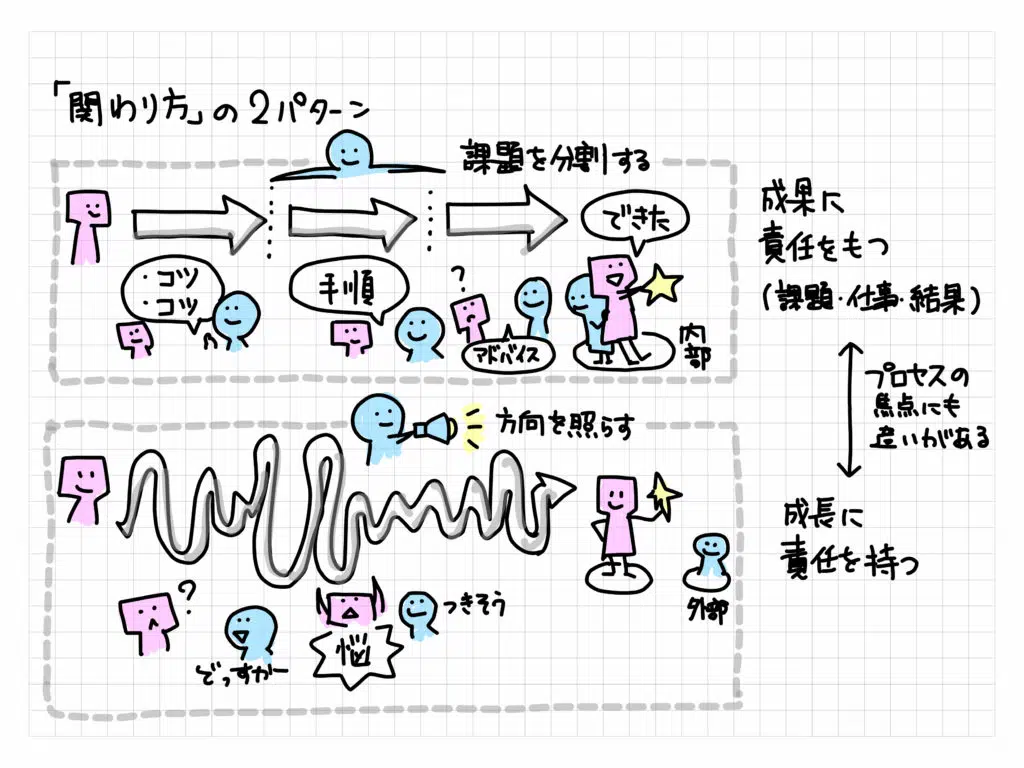 「関わり方」の2パターン
課題を分割する
できた
・コツ
・コツ
手順
?
アドバイス
内部
成果に
責任をもつ
(課題・仕事・結果)
プロセスの
焦点にも
違いがある
方向を照らす
成長に
責任を持つ
?
どっすかー
悩
つきそう
外部